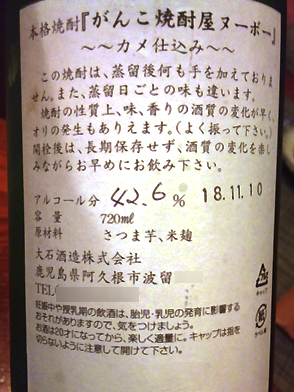 本格焼酎『がんこ焼酎屋ヌーボー』
～～カメ仕込み～～
この焼酎は、蒸留後何も手を加えておりま
せん。また、蒸留日ごとの味も違います。
焼酎の性質上、味、香りの酒質の変化が早く、
オリの発生もありえます。(よく振って下さい。)
開栓後は、長期保存せず、酒質の変化を楽し
みながらお早めにお飲み下さい。
アルコール分 42.6% 18.11.10
容量 720ml
原材料 さつま芋、米麹
大石酒造株式会社
鹿児島県阿久根市波留
TEL
妊娠中や授乳期の飲酒は、胎児・乳児の発育に影響する
おそれがありますので、気をつけましょう。
お酒は20才になってから、楽しく適量に。キャップは指を
切らないように注意して開けて下さい。